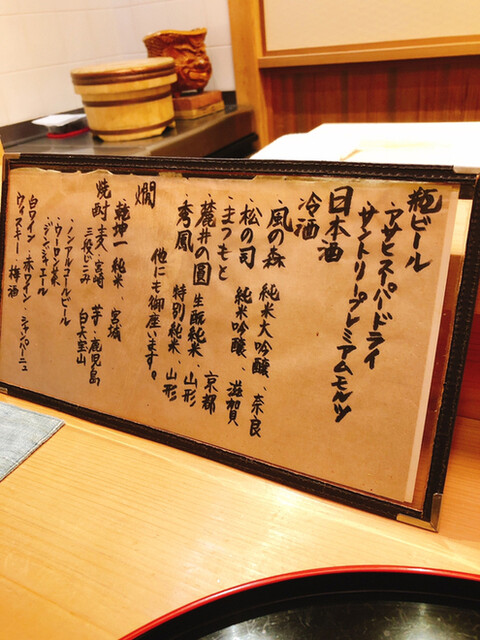 瓶ビール
・アサヒスーパードライ
・サントリープレミアムモルツ
日本酒
冷酒
・風の森 純米大吟醸、奈良
・松の司 純米吟醸、滋賀
・まつもと 京都
・麓井の圓 生酛純米、山形
・秀鳳 特別純米、山形
他にも御座います。
燗
乾坤一 純米、宮城
焼酎・麦、宮崎 芋・鹿児島
・ノンアルコールビール
・ウーロン茶
・ジンジャエール
白ワイン・赤ワイン・シャンパーニュ
ウィスキー・梅酒